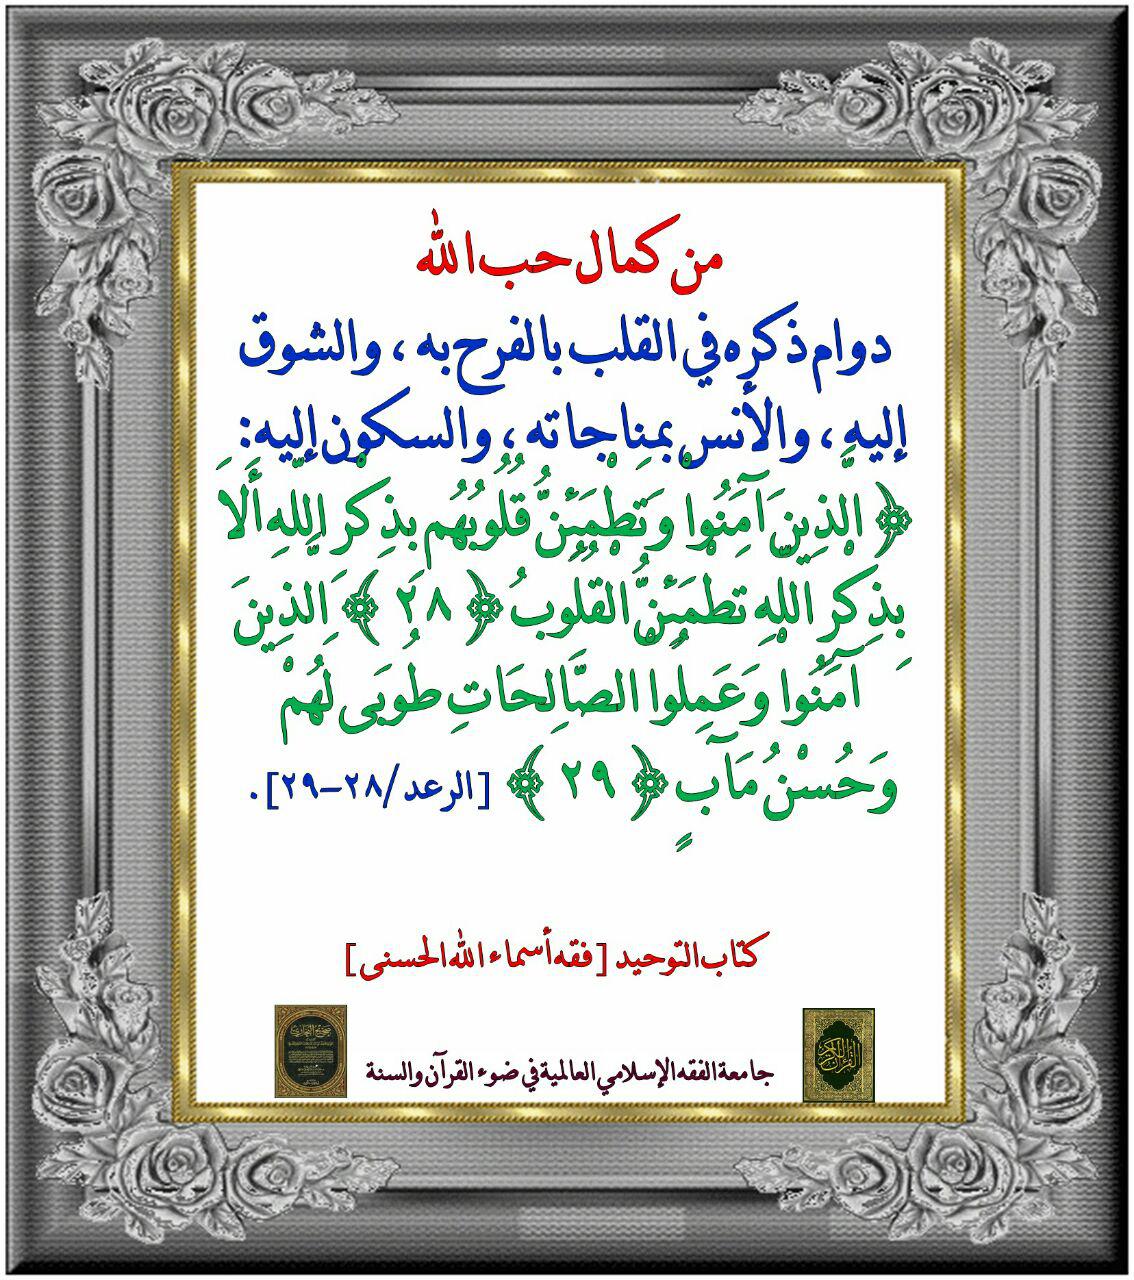 من كمال حب الله
دوام ذكره في القلب بالفرح به ، والشوق
إليه ، والأنس بمناجاته ، والسكون إليه:
﴿ الَّذِينَ آمَنُوا وَتَطْمَئِنُّ قُلُوبُهُم بِذِكْرِ اللَّهِ أَلَا
بِذِكْرِ اللَّهِ تَطْمَئِنُّ الْقُلُوبُ ﴿ ٢٨ ﴾ الَّذِينَ
آمَنُوا وَعَمِلُوا الصَّالِحَاتِ طُوبَى لَهُمْ
وَحُسْنُ مَآبٍ ﴿ ٢٩ ﴾ [الرعد/٢٨-٢٩].
كتاب التوحيد [فقه أسماء الله الحسنى]
صحيح البخاري
القرآن الكريم
جامعة الفقه الإسلامي العالمية في ضوء القرآن والسنة